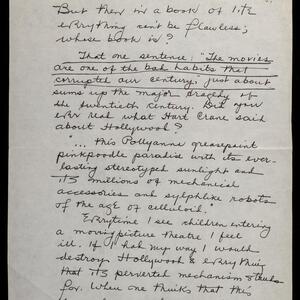 But then in a book of life
everything can't be flawless;
whose book is?
That one sentence: "The movies
are one of the bad habits that
corrupted our century," just about
sums up the major tragedy of
the twentieth century. But you
ever read what Hart Crane said
about Hollywood?
"... this Pollyanna greasepaint
pinkpoodle paradise with its ever-
lasting stereotyped sunlight and
its millions of mechanical
accessories and sylphlike robots
of the age of celluloid."
Everytime I see children entering
a moving picture theatre I feel
ill. If I had my way I would
destroy Hollywood & everything
that its perverted mechanism stands
for. When one thinks that this